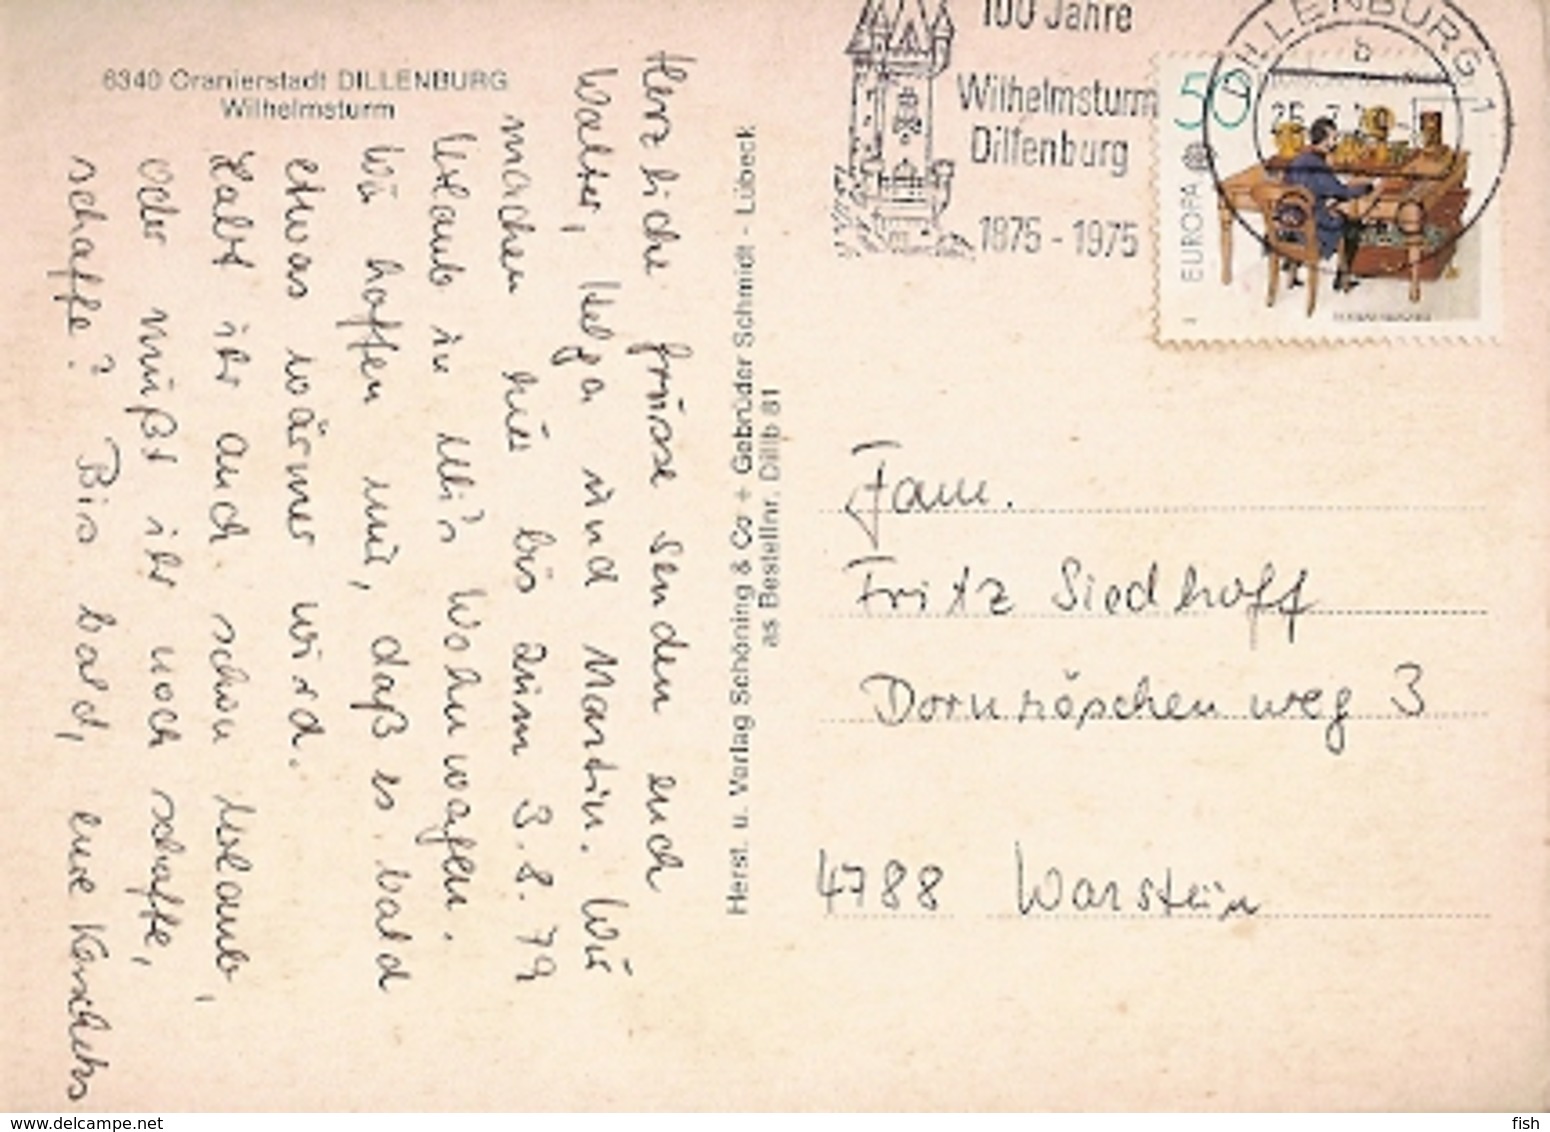 6340 Oranierstadt DILLENBURG
Wilhelmsturm
Herzliche Grüsse senden euch
Walter, Helga und Martin. Wir
machen hier bis zum 3.8.79
Urlaub in Ulli's Wohnwagen.
Wir hoffen nur, daß es bald
etwas wärmer wird.
Habt ihr auch schon Urlaub,
oder müßt ihr noch schaffe,
schaffe? Bis bald, eure
Herst. u. Verlag Schöning & Co + Gebrüder Schmidt - Lübeck
as Bestellnr. Dillb 81
100 Jahre
Wilhelmsturm
Dillenburg
1875 - 1975
DILLENBURG 1
b
50
EUROPA
Fam.
Fritz Siedhoff
Dornröschenweg 3
4788 Warstein
fish